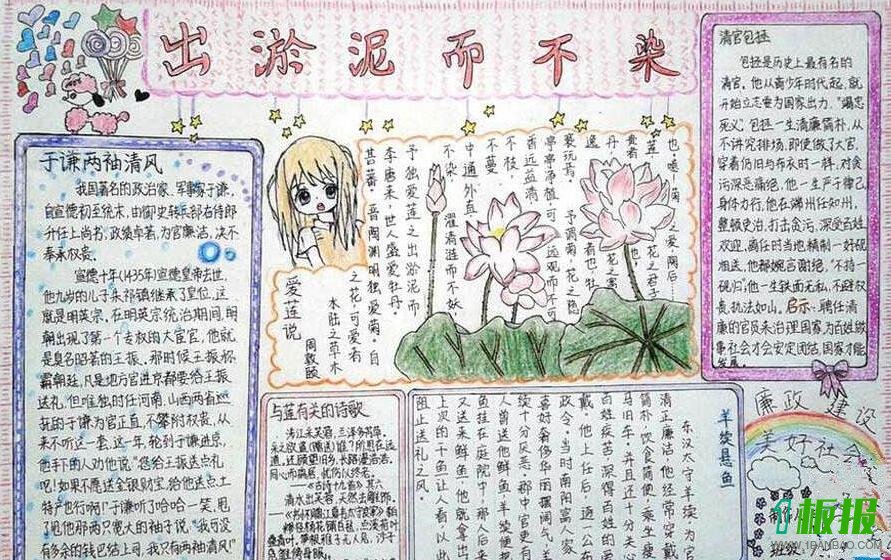 出淤泥而不染
于谦两袖清风
我国著名的政治家、军事家于谦,
自宣德初至统末,由御史转兵部右侍郎
升任上尚书,政绩卓著,为官廉洁,决不
奉承权贵。
宣德十年(1435年)宣德皇帝去世,
他九岁的儿子朱祁镇继承了皇位,这
就是明英宗。在明英宗统治期间,明
朝出现了第一个专权的大宦官,他就
是臭名昭著的王振。那时候王振称
霸朝廷,凡是地方官进京都要给王振
送礼。但唯独时任河南、山西两省巡
抚的于谦为官正直,不攀附权贵,从
来不听这一套。这一年,轮到于谦进京,
他手下的人劝他说"您给王振送点礼
吧!如果不愿送金银财宝,给他送点土
特产也行啊!"于谦听了哈哈一笑,甩了
甩他那两只宽大的袖子说"我可没
有多余的钱巴结上司,我只有两袖清风!"
爱莲说
周敦颐
水陆草木之花,可爱者
甚蕃。晋陶渊明独爱菊。自
李唐来,世人盛爱牡丹。
予独爱莲之出淤泥而
不染,濯清涟而不妖,
中通外直,
不蔓
不枝,
香远益清,
亭亭净植,可远观而不可
亵玩焉。
予谓菊,花之隐
逸
者也;牡
丹,
花之富
贵者
莲,
花之君子
也。噫!菊之爱,陶后
清官包拯
包拯是历史上最有名的
清官。他从青少年时代起,就
开始立志要为国家出力,"竭忠
死义"。包拯一生清廉简朴,从
不讲究排场,即使做了大官,
穿着仍旧与布衣时一样。对贪
污深恶痛绝,他一生严于律己,
身体力行,他在端州任知州,
整顿吏治,打击贪污,深受百姓
欢迎,离任时当地精制一好砚
相送,他都婉言谢绝,"不持一
砚归";他一生铁面无私,不避权
贵,执法如山。启示:聘任清
廉的官员来治理国家,为百姓做
事社会才会安定团结,国家才能
发展。
与莲有关的诗歌
涉江采芙蓉,兰泽多芳草。
采之欲遗谁?所思在远
道。还顾望旧乡,长路漫浩浩。
同心而离居,忧伤以终老。
——《古诗十九首》其六
清水出芙蓉,天然去雕饰。
羊续悬鱼
东汉太守羊续,为官
清正廉洁,他经常穿戴
简朴,饮食简便,乘坐瘦
马旧车,并且还十分关心
百姓疾苦,深得百姓的爱
戴。他上任后,逐一公布
政令。当时南阳富家,
喜好奢侈华丽摆阔气,羊
续十分厌恶。那中官吏有
人曾送他鲜鱼,羊续便把
鱼挂在庭院中。那人后来
又送来鲜鱼,他就拿出
上次的干鱼让人看,以此
阻止送礼之风。
廉政建设
美好社会
板报
WWW.1BANBAO.COM